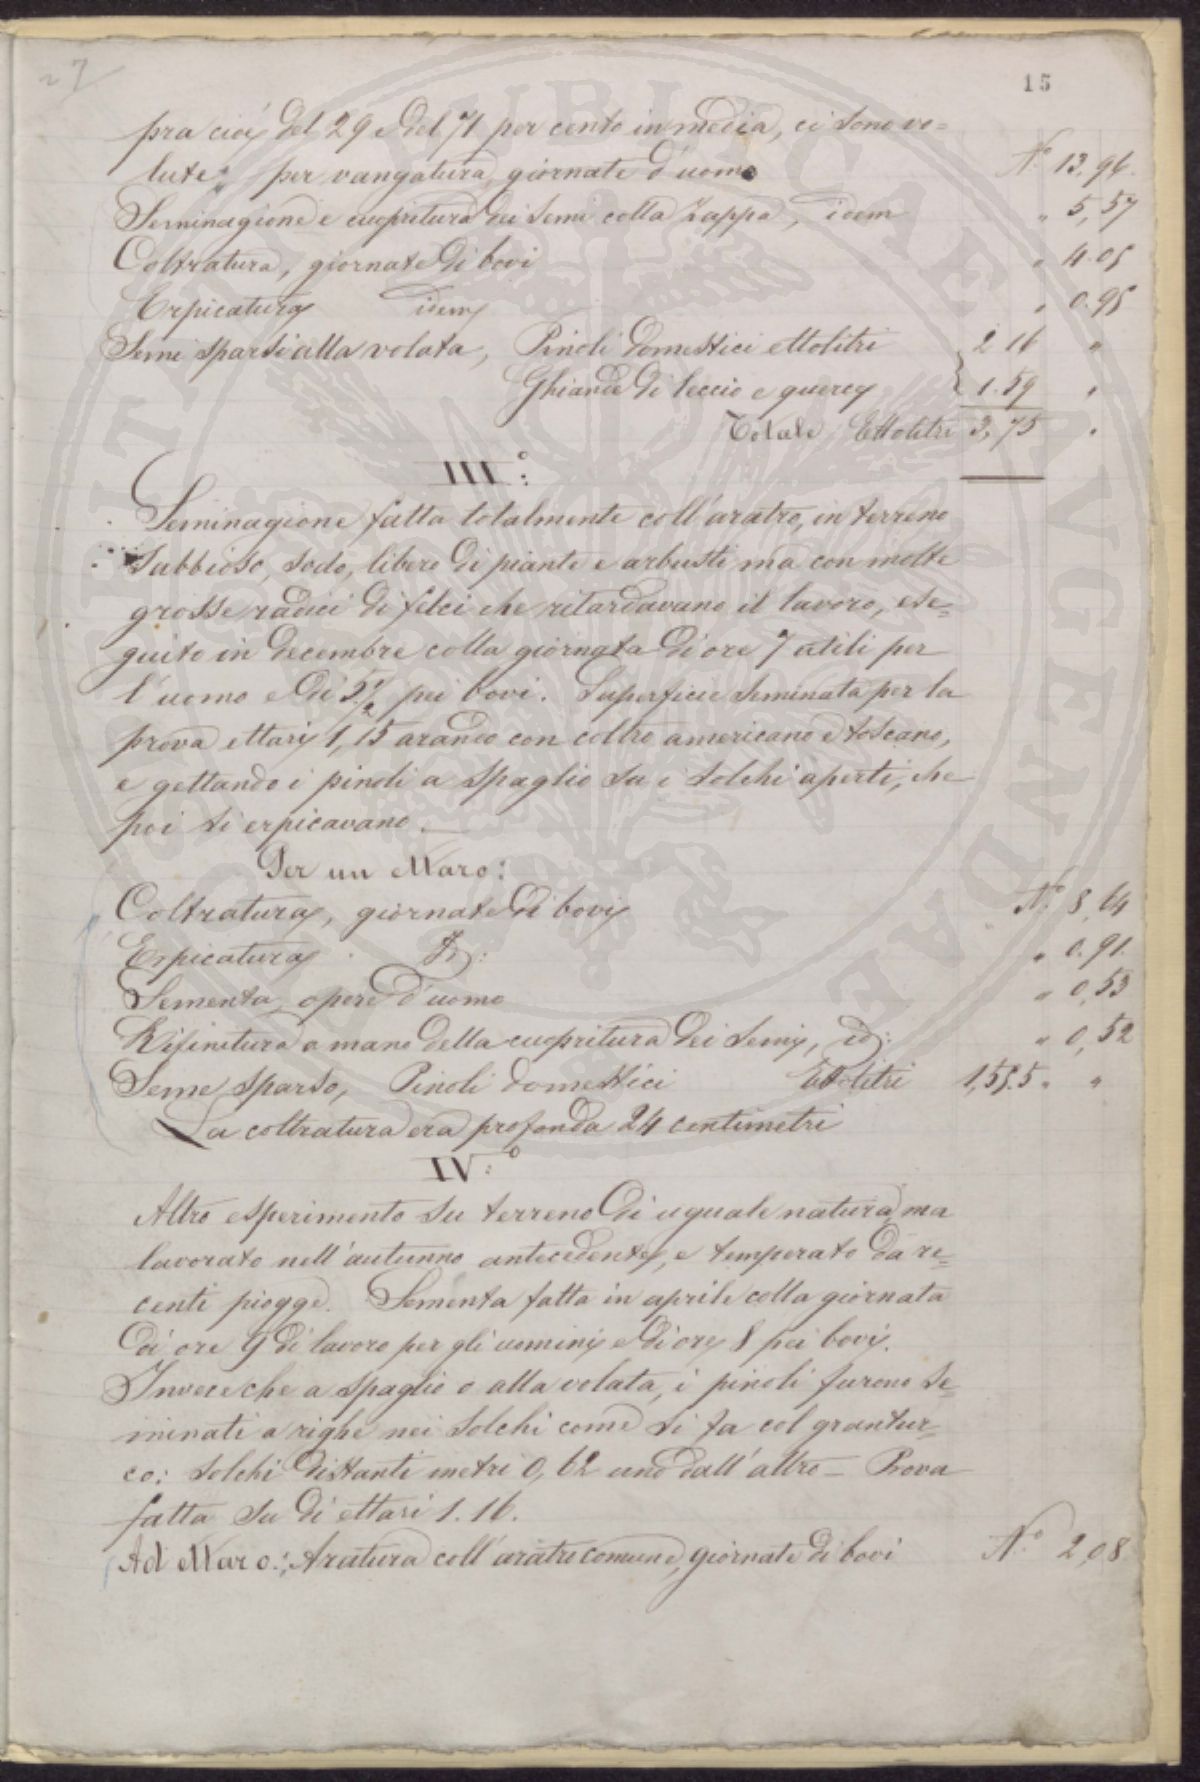 27
15
pra cioè del 29 e del 71 per cento in media, ci sono vo=
lute: per vangatura, giornate d'uomo N.° 13.96.
Seminagione e cuopritura dei semi colla zappa, idem " 5,57
Coltratura, giornate di bovi " 4.05
Erpicatura idem " 0.95
Semi sparsi alla volata, Pinoli domestici ettolitri 2 16 "
Ghiande di leccio e querce 1.59 "
Totale Ettolitri 3,75 "
III.°
Seminagione fatta totalmente coll'aratro, in terreno
sabbioso, sodo, libero di piante e arbusti ma con molte
grosse radici di felci che ritardavano il lavoro, ese=
guito in decembre colla giornata di ore 7 utili per
l'uomo e di 5 1/2 pei bovi. Superficie seminata per la
prova ettari 1,15 arando con coltro americano e toscano,
e gettando i pinoli a spaglio su i solchi aperti, che
poi si erpicavano.
Per un ettaro:
Coltratura, giornate di bovi N.° 8,64
Erpicatura Id: " 0.91.
Sementa, opere d'uomo " 0,53
Rifinitura a mano della cuopritura dei semi, id: " 0,52
Seme sparso, Pinoli domestici Ettolitri 1,55.5 " "
La coltratura era profonda 24 centimetri
IV.°
Altro esperimento su terreno di uguale natura, ma
lavorato nell'autunno antecedente, e temperato da re=
centi piogge. Sementa fatta in aprile colla giornata
di ore 9 di lavoro per gli uomini e di ore 8 pei bovi.
Invece che a spaglio o alla volata, i pinoli furono se=
minati a righe nei solchi come si fa col grantur=
co: solchi distanti metri 0,62 uno dall'altro — Prova
fatta su di ettari 1.16.
Ad ettaro: Aratura coll'aratro comune, giornate di bovi N.° 2,08